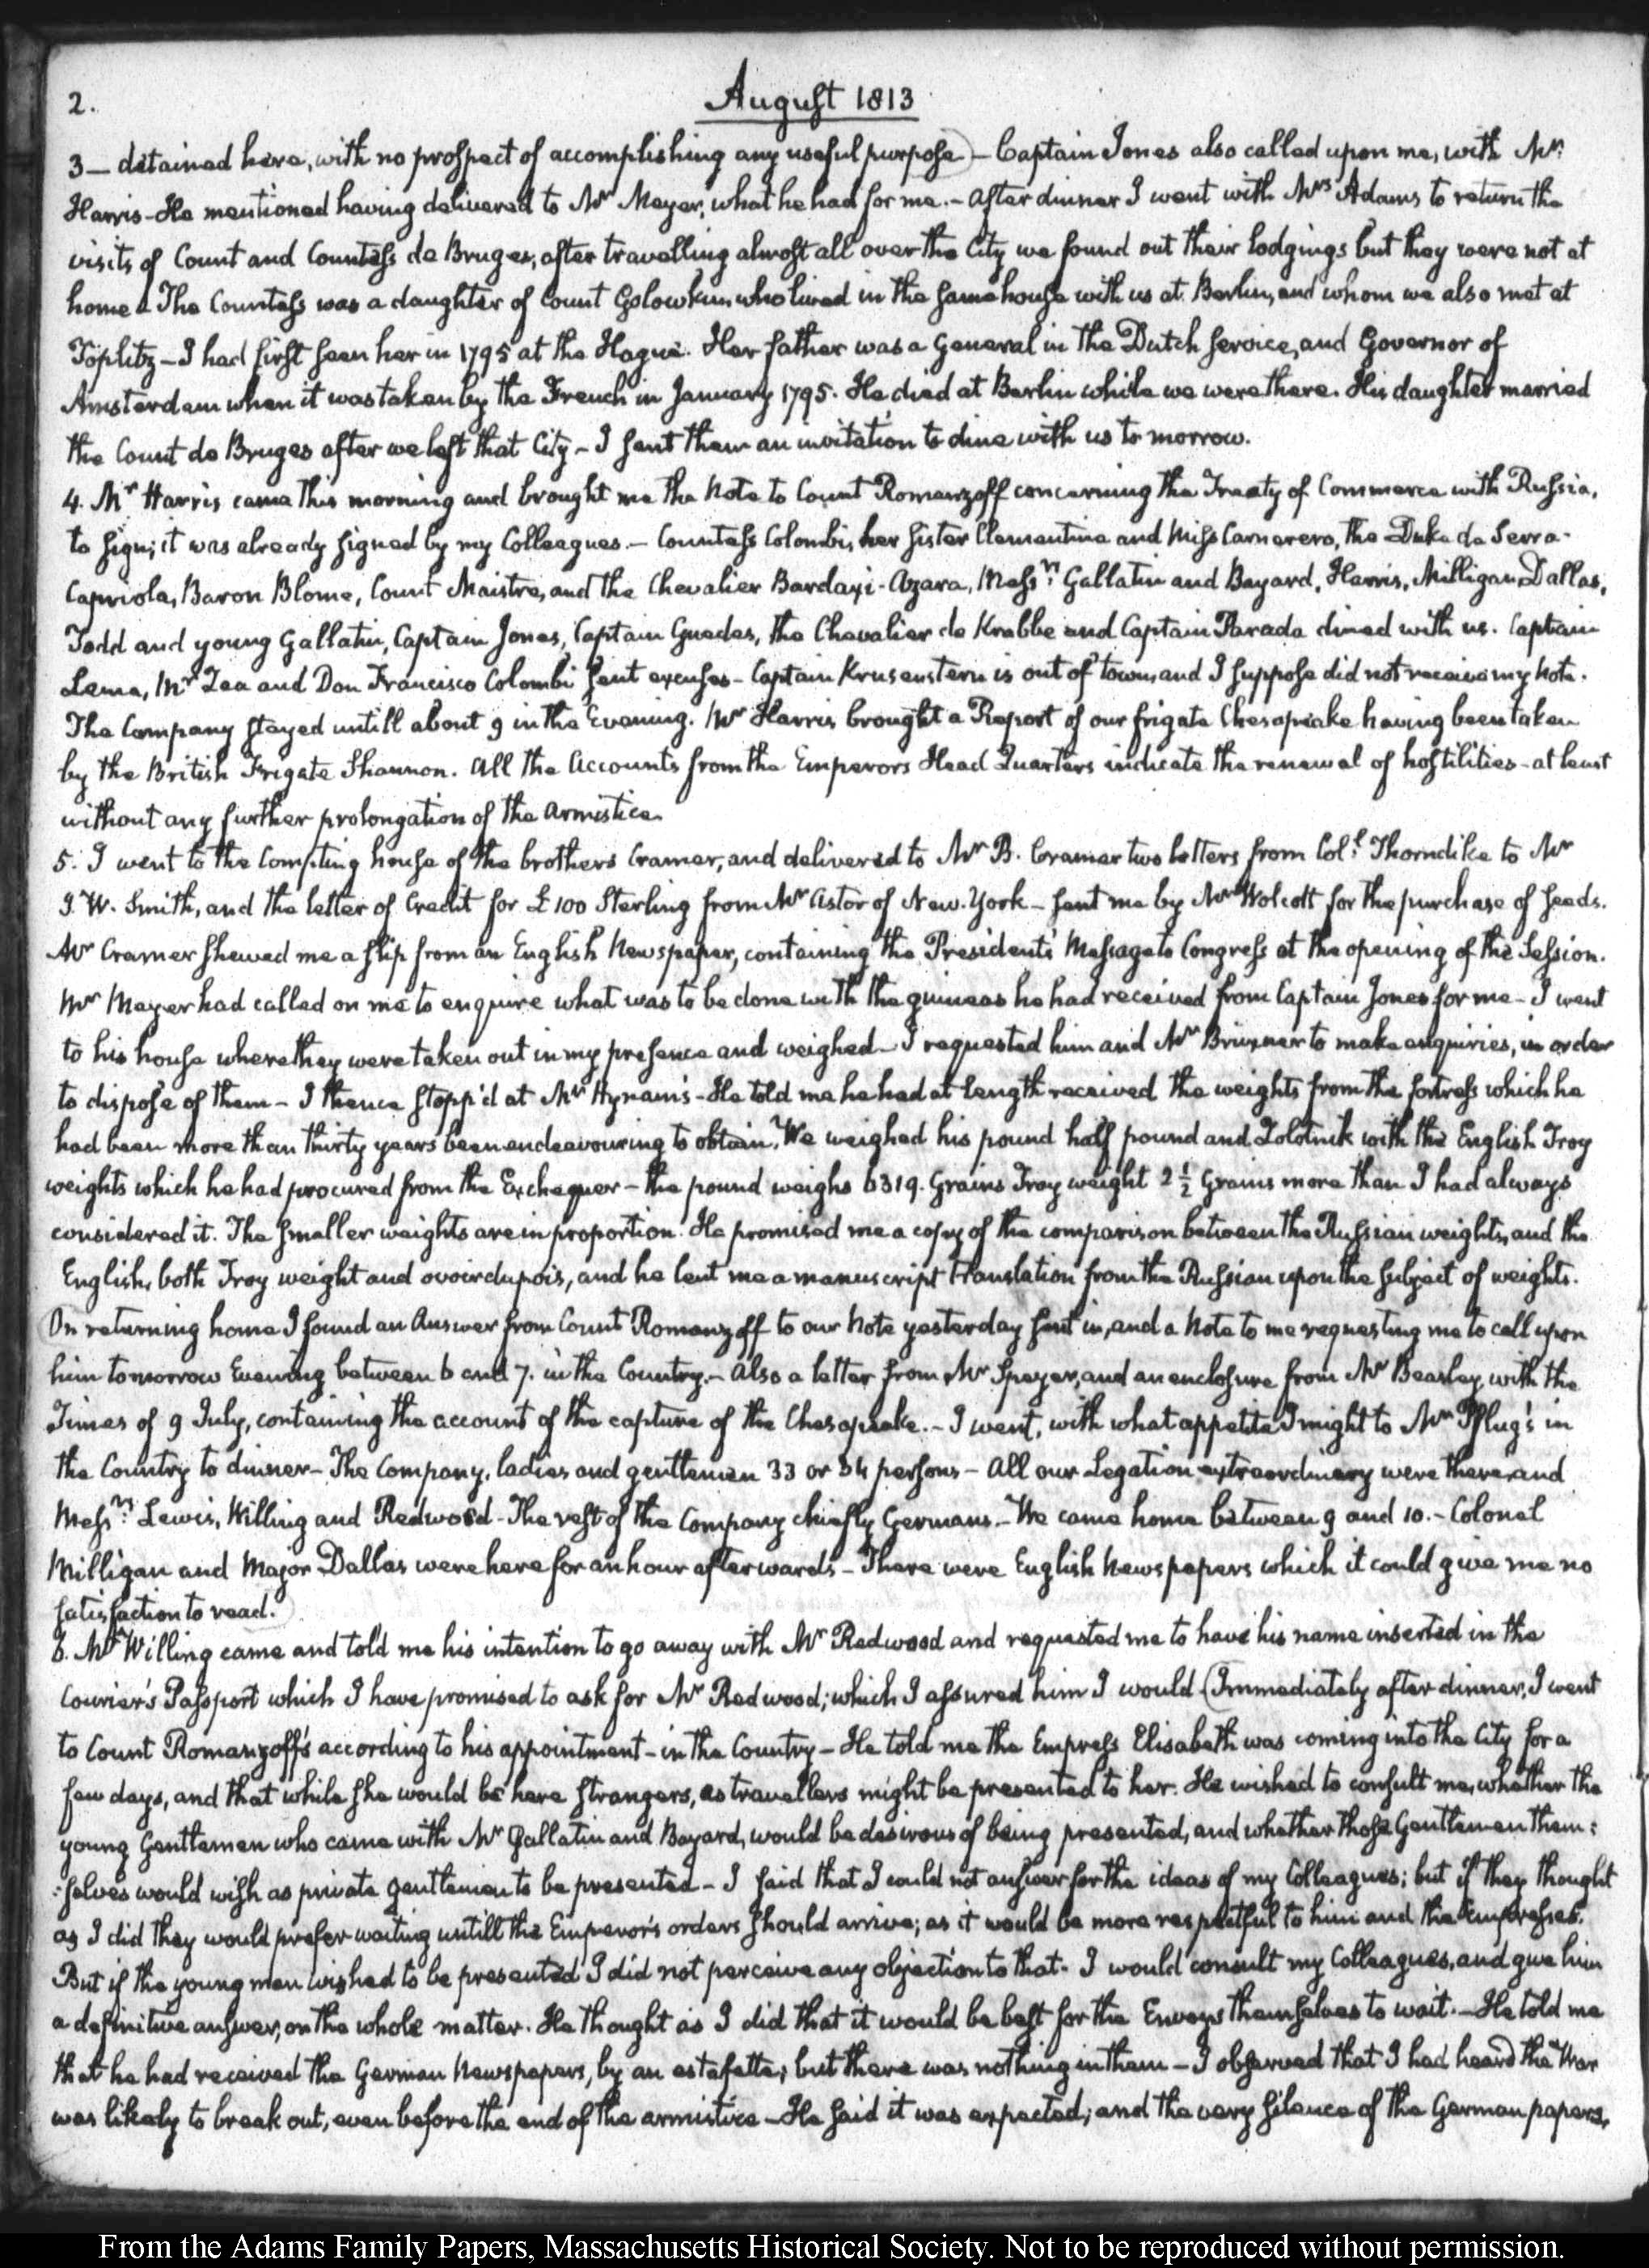 2.
August 1813
3 — detained here, with no prospect of accomplishing any useful purpose) — Captain Jones also called upon me, with Mr.
Harris - He mentioned having delivered to Mr Meyer, what he had for me. - After dinner I went with Mrs Adams to return the
visits of Count and Countess de Bruges; after travelling almost all over the City we found out their lodgings but they were not at
home. The Countess was a daughter of Count Golowkin who lived in the same house with us at Berlin, and whom we also met at
Töplitz — I had first seen her in 1795 at the Hague. Her father was a General in the Dutch service, and Governor of
Amsterdam when it was taken by the French in January 1795. He died at Berlin while we were there. His daughter married
the Count de Bruges after we left that City - I sent them an invitation to dine with us to morrow.
4. Mr Harris came this morning and brought me the Note to Count Romanzoff concerning the Treaty of Commerce with Russia,
to sign; it was already signed by my Colleagues. — Countess Colombi, her Sister Clementina and Miss Carnerero, the Duke de Serra-
Capriola, Baron Blome, Count Maistre, and the Chevalier Bardaxi-Azara, Messrs. Gallatin and Bayard, Harris, Milligan, Dallas,
Todd and young Gallatin, Captain Jones, Captain Guedes, the Chevalier de Krabbe and Captain Parada dined with us. Captain
Lema, Mr Zea and Don Francisco Colombi sent excuses - Captain Krusenstern is out of town, and I suppose did not receive my Note.
The Company stayed untill about 9 in the Evening. Mr Harris brought a Report of our frigate Chesapeake having been taken
by the British Frigate Shannon. All the Accounts from the Emperors Head Quarters indicate the renewal of hostilities - at least
without any further prolongation of the Armistice.
5. I went to the Compting house of the brothers Cramer, and delivered to Mr B. Cramer two letters from Coll. Thorndike to Mr
J. W. Smith, and the letter of Credit for £100 Sterling from Mr Astor of New-York - sent me by Mr Wolcott for the purchase of seeds.
Mr Cramer shewed me a slip from an English Newspaper, containing the President's Message to Congress at the opening of the Session.
Mr Meyer had called on me to enquire what was to be done with the guineas he had received from Captain Jones for me - I went
to his house where they were taken out in my presence and weighed - I requested him and Mr Brüxner to make enquiries, in order
to dispose of them - I thence stopp'd at Mr Hynam's - He told me he had at length received the weights from the fortress which he
had been more than thirty years been endeavouring to obtain. We weighed his pound half pound and Zolotnik with the English Troy
weights which he had procured from the Exchequer - the pound weighs 6319. Grains Troy weight 2 1/2 Grains more than I had always
considered it. The smaller weights are in proportion. He promised me a copy of the comparison between the Russian weights, and the
English, both Troy weight and avoirdupois, and he lent me a manuscript translation from the Russian upon the subject of weights.
(On returning home I found an Answer from Count Romanzoff to our Note yesterday sent in, and a Note to me requesting me to call upon
him tomorrow Evening between 6 and 7. in the Country. - Also a letter from Mr Speyer, and an enclosure from Mr Beasley, with the
Times of 9 July, containing the account of the capture of the Chesapeake. - I went, with what appetite I might to Mr Pflug's in
the Country to dinner - The Company, ladies and gentlemen 33 or 34 persons - All our Legation extraordinary were there, and
Messrs. Lewis, Willing and Redwood - The rest of the Company chiefly Germans. - We came home between 9 and 10. - Colonel
Milligan and Major Dallas were here for an hour afterwards - There were English Newspapers which it could give me no
satisfaction to read.)
6. Mr Willing came and told me his intention to go away with Mr Redwood and requested me to have his name inserted in the
Courier's Passport which I have promised to ask for Mr Redwood; which I assured him I would (Immediately after dinner, I went
to Count Romanzoff's according to his appointment - in the Country - He told me the Empress Elisabeth was coming into the City for a
few days, and that while she would be here strangers, as travellers might be presented to her. He wished to consult me, whether the
young Gentlemen who came with Mr Gallatin and Bayard, would be desirous of being presented, and whether those Gentlemen them:
:selves would wish as private gentlemen to be presented - I said that I could not answer for the ideas of my Colleagues; but if they thought
as I did they would prefer waiting untill the Emperor's orders should arrive; as it would be more respectful to him and the Empresses.
But if the young men wished to be presented I did not perceive any objection to that. I would consult my Colleagues, and give him
a definitive answer, on the whole matter. He thought as I did that it would be best for the Envoys themselves to wait. - He told me
that he had received the German Newspapers, by an estafette; but there was nothing in them - I observed that I had heard the War
was likely to break out, even before the end of the armistice - He said it was expected; and the very silence of the German papers,
From the Adams Family Papers, Massachusetts Historical Society. Not to be reproduced without permission.